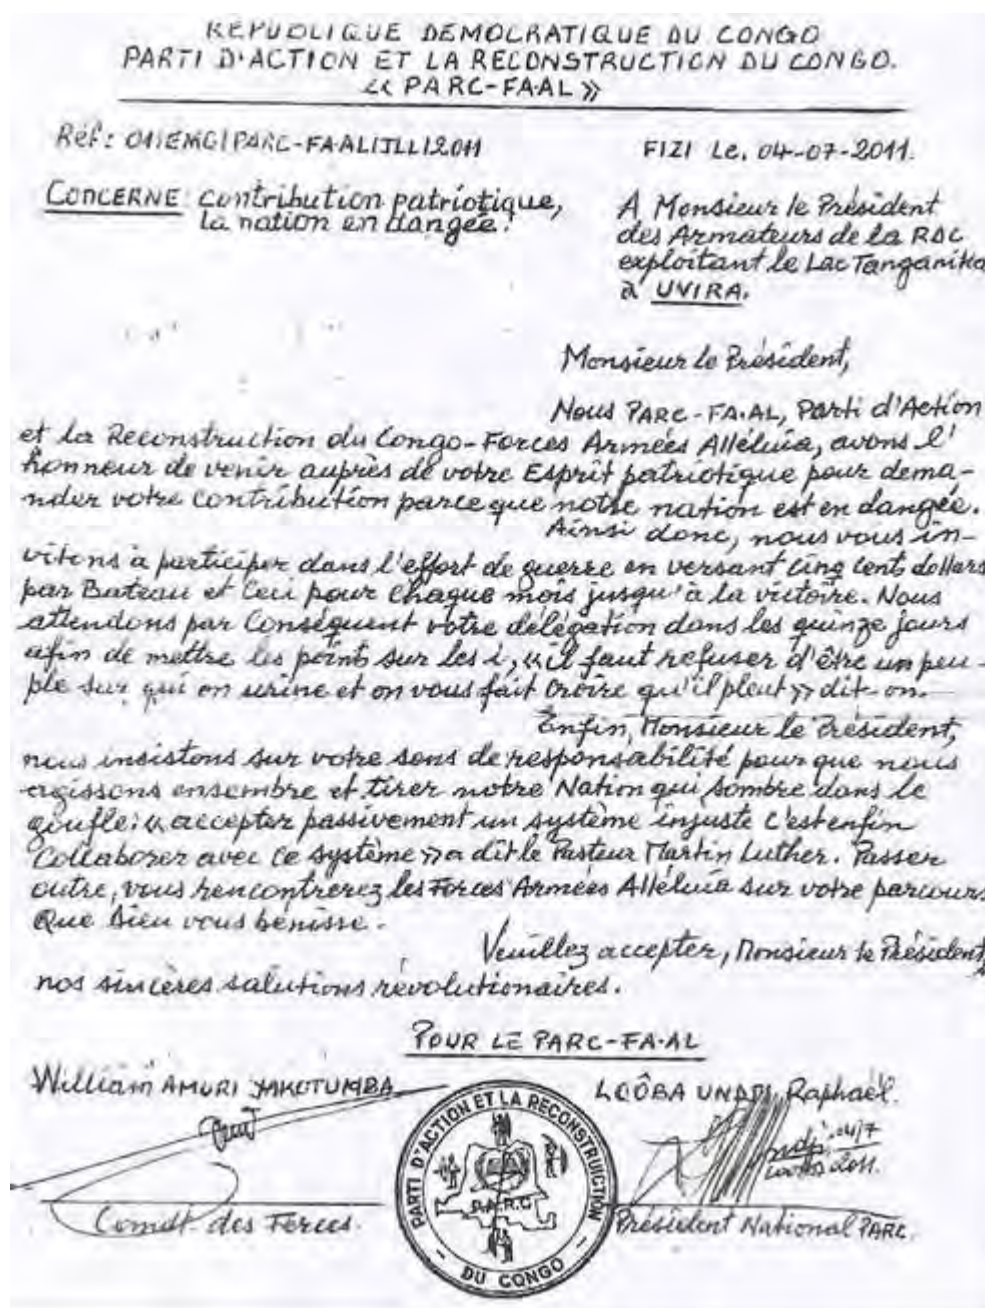 REPUBLIQUE DEMOCRATIQUE DU CONGO
PARTI D'ACTION ET LA RECONSTRUCTION DU CONGO.
« PARC-FAAL »
Réf: 011EMG/PARC-FA-AL/JLL/2011
FIZI Le, 04-07-2011.
CONCERNE: contribution patriotique,
la nation en dangée.
A Monsieur le Président
des Armateurs de la RDC
exploitant le Lac Tanganika
à UVIRA.
Monsieur le Président,
Nous PARC-FA.AL, Parti d'Action
et la Reconstruction du Congo-Forces Armées Alléluia, avons l'
honneur de venir auprès de votre Esprit patriotique pour dema-
nder votre contribution parce que notre nation est en dangée.
Ainsi donc, nous vous in-
vitons à participer dans l'effort de guerre en versant cinq cents dollars
par Bateau et Ceci pour chaque mois jusqu'à la victoire. Nous
attendons par Conséquent votre délégation dans les quinze jours
afin de mettre les points sur les i, « il faut refuser d'être un peu-
ple sur qui on urine et on vous fait croire qu'il pleut » dit-on.
Enfin, Monsieur le Président,
nous insistons sur votre sens de responsabilité pour que nous
agissons ensembre et tirer notre Nation qui sombre dans le
goufle: « accepter passivement un système injuste c'est enfin
Collaborer avec ce système » a dit le Pasteur Martin Luther. Passer
outre, vous rencontrerez les Forces Armées Alléluia sur votre parcours
Que Dieu vous bénisse.
Veuillez accepter, Monsieur le Président,
nos sincères salutions révolutionaires.
POUR LE PARC-FA.AL
William AMURI YAKOTUMBA
LOÔBA UNDJI Raphaël.
04/7
2011.
Comdt des Forces.
Président National PARC.
PARTI D'ACTION ET LA RECONSTRUICTION
P.A.R.C
DU CONGO